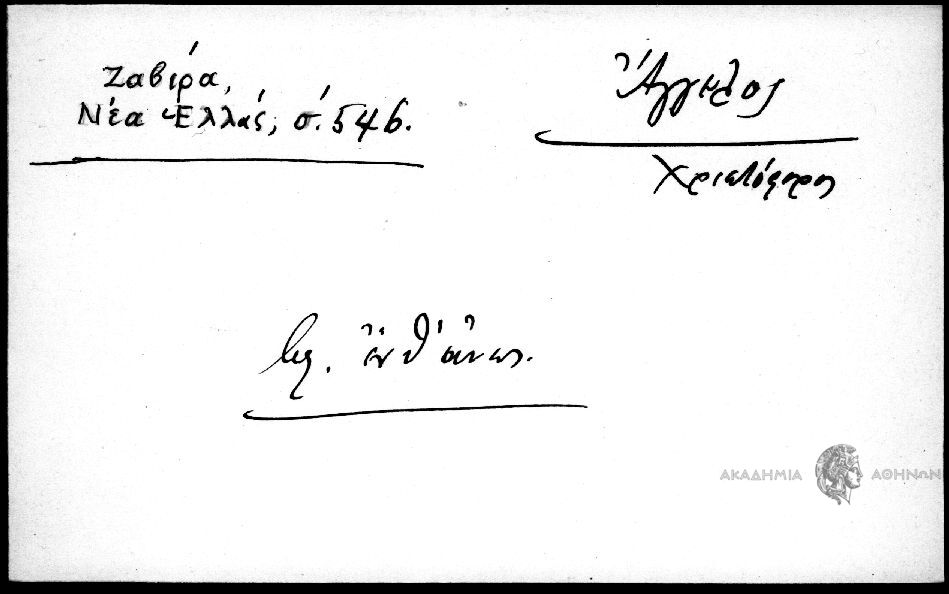 Ζαβίρα,
Νέα Ἑλλάς, σ. 546.
Ἄγγελος
Χριστόφορος
Βλ. ἔνθ' ἄνω.
ΑΚΑΔΗΜΙΑ ΑΘΗΝΩΝ